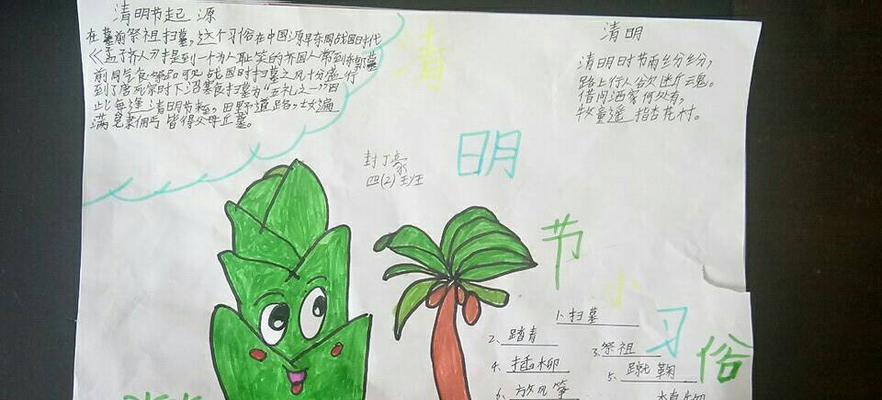 清明节起源
在墓前祭祖扫墓,这个习俗在中国源早东周战国时代
《孟子齐人》提到一个为人耻笑的齐国人常到
前同乞食祭品可见战国时扫墓之风十分盛行
到了唐玄宗时下诏寒食扫墓为“五礼之一”因
此每逢清明节来,田野道路,士遍
满皂隶佣丐皆得父母丘墓。
清明
清明时节雨纷纷,
路上行人欲断魂。
借问酒家何处有,
牧童遥指杏花村。
封丁豪
四(2)班
清
明
节
小
习
俗
1、扫墓
2、踏青
3、祭祖
4、插柳
5、蹴鞠
6、放风筝